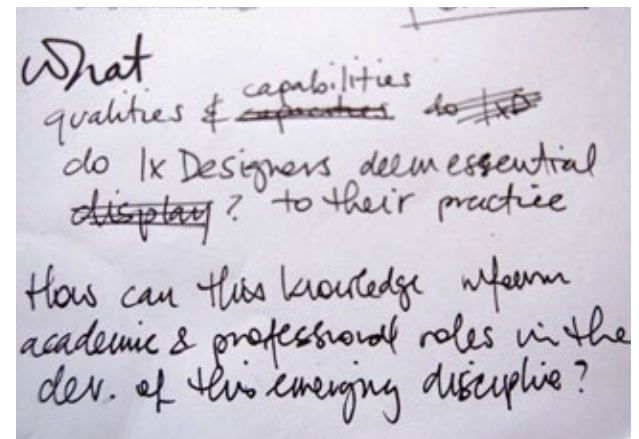 What
capabilities
qualities & capacities do IxD
do Ix Designers deem essential
display ? to their practice
How can this knowledge inform
academic & professional roles in the
dev. of this emerging discipline?